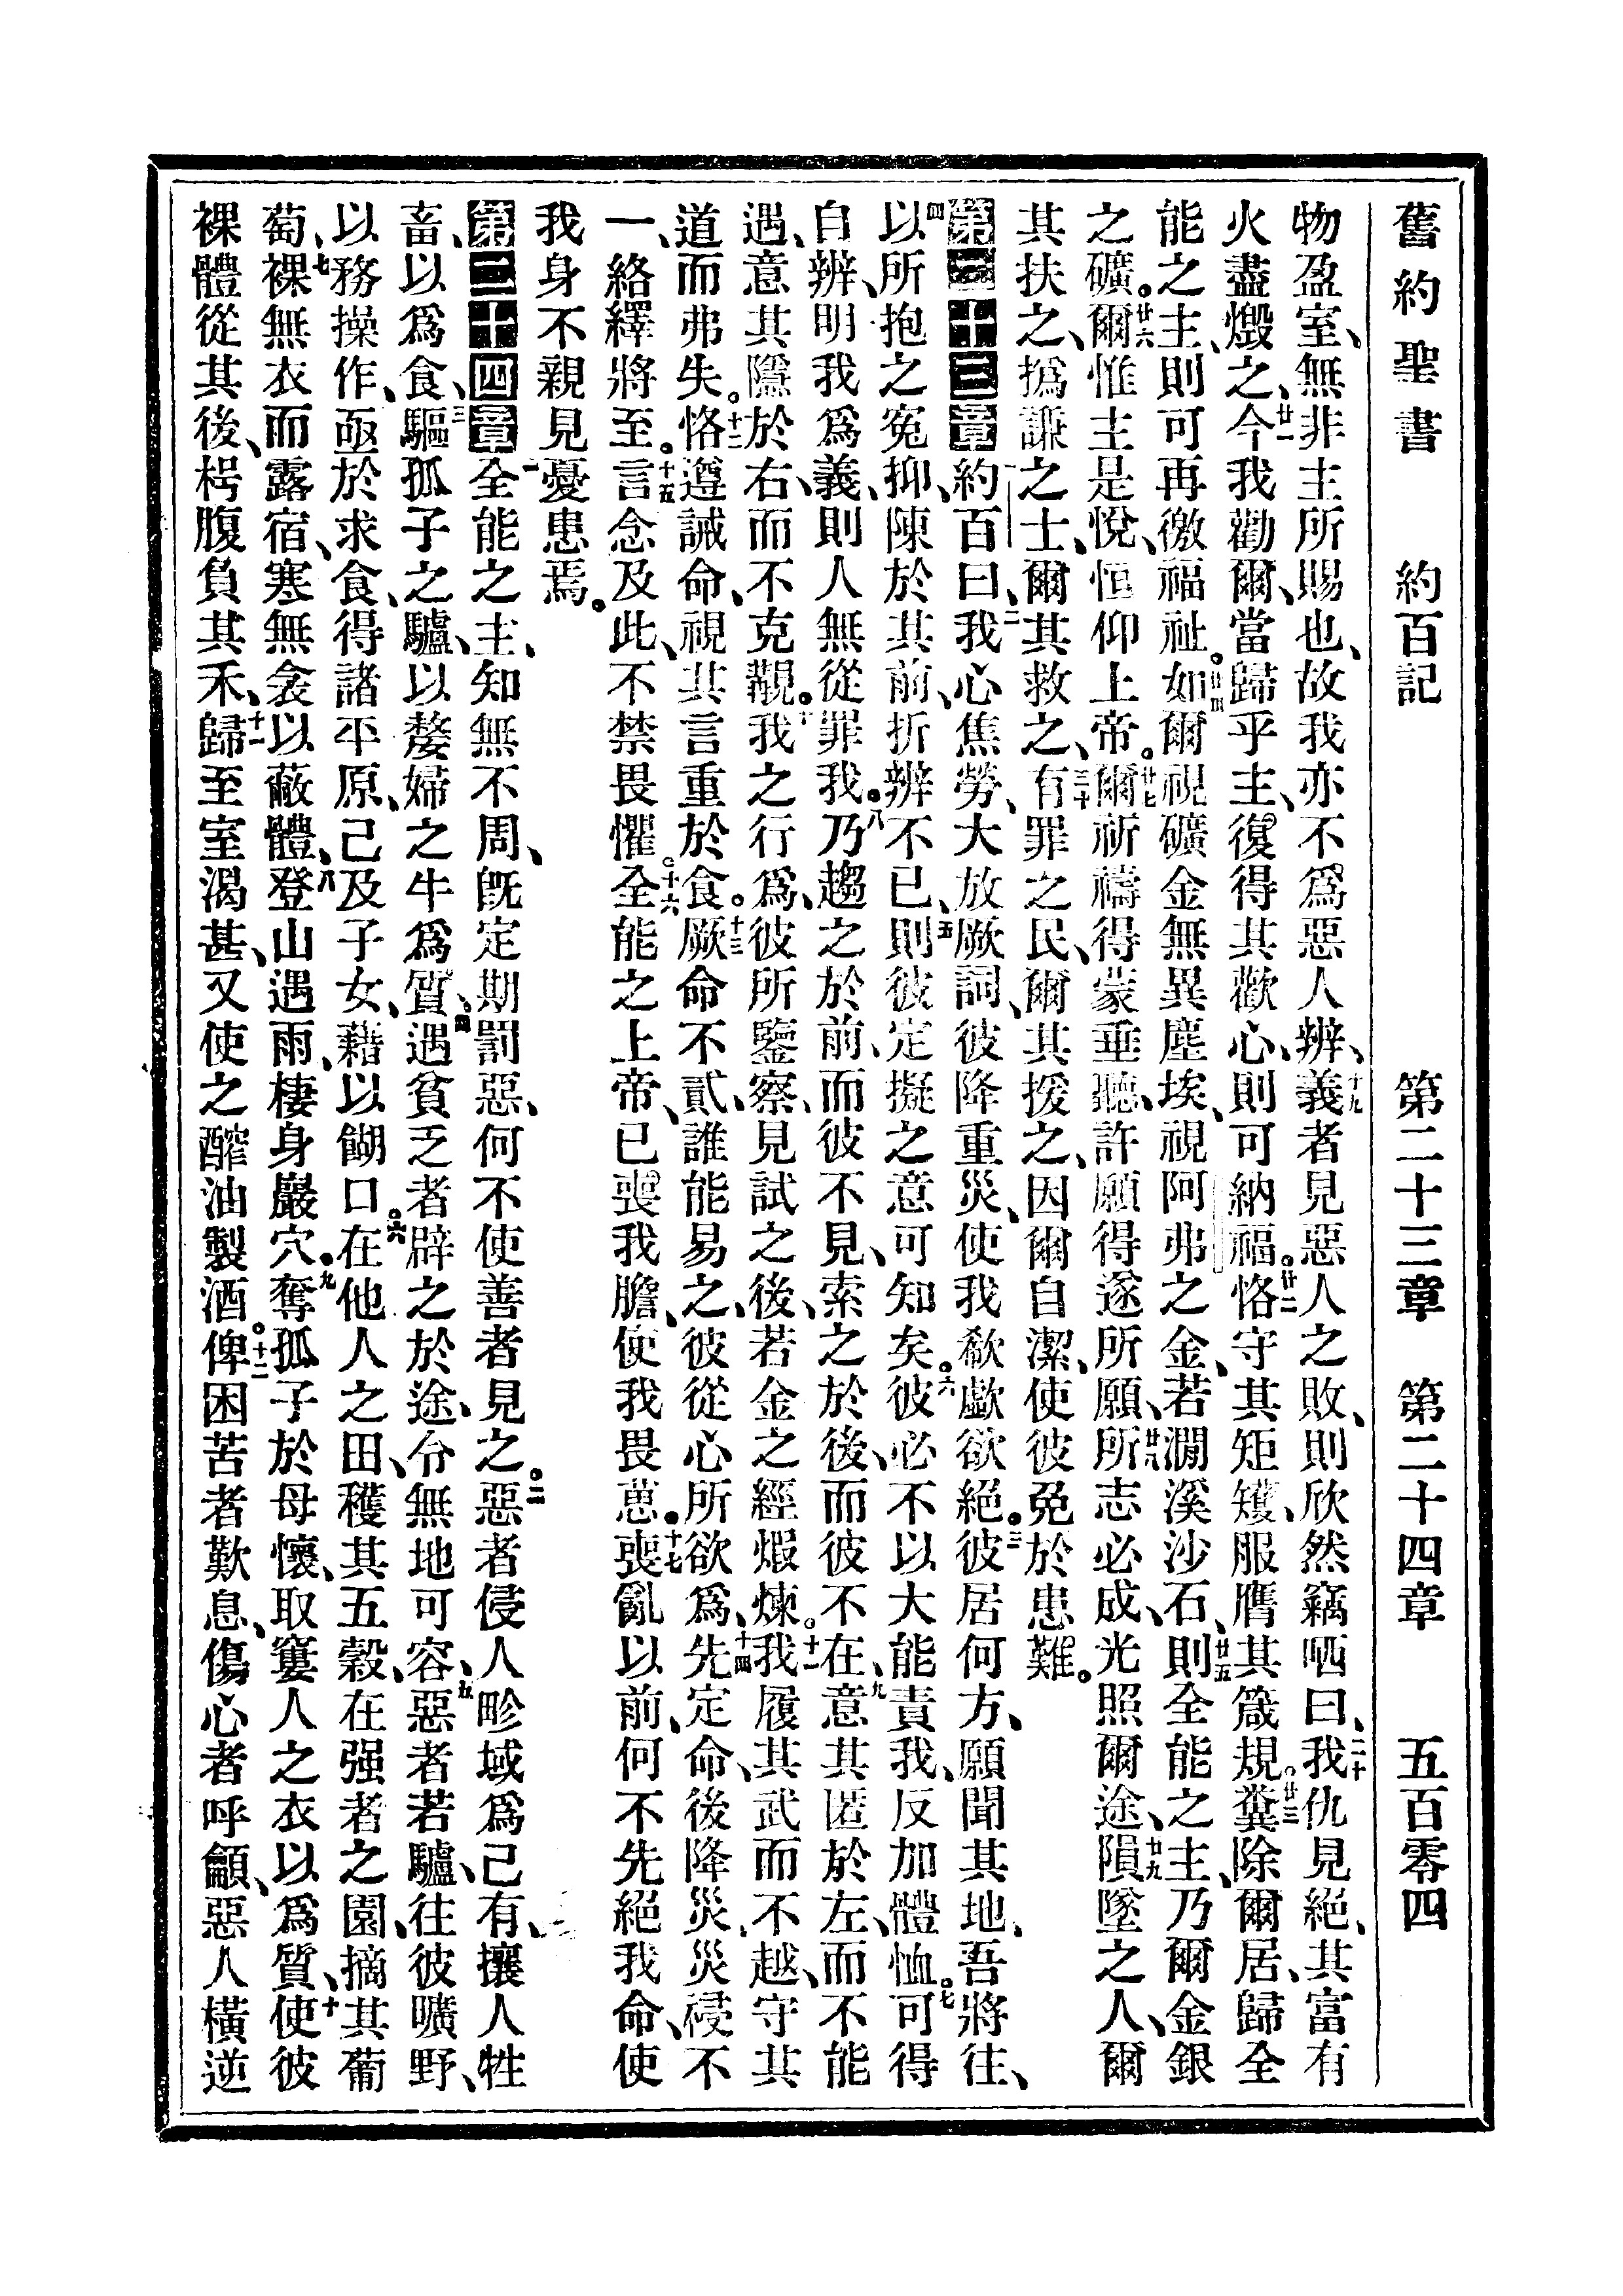 舊約聖書 約百記 第二十三章 第二十四章 五百零四
物盈室、無非主所賜也、故我亦不爲惡人辨、十九義者見惡人之敗、則欣然竊哂曰、二十我仇見絕、其富有
火盡燬之、廿一今我勸爾、當歸乎主、復得其歡心、則可納福。廿二恪守其矩矱、服膺其箴規。廿三糞除爾居、歸全
能之主、則可再徼福祉。廿四如爾視礦金無異塵埃、視阿弗之金、若澗溪沙石、廿五則全能之主、乃爾金銀
之礦。廿六爾惟主是悅、恒仰上帝。廿七爾祈禱得蒙垂聽、許願得遂所願、廿八所志必成、光照爾途、廿九隕墜之人、爾
其扶之、撝謙之士、爾其救之、三十有罪之民、爾其援之、因爾自潔、使彼免於患難。
第二十三章約百曰、二我心焦勞、大放厥詞、彼降重災、使我欷歔欲絕。三彼居何方、願聞其地、吾將往、
四以所抱之寃抑、陳於其前、折辨不已、五則彼定擬之意可知矣。六彼必不以大能責我、反加體恤。七可得
自辨、明我爲義、則人無從罪我。八乃趨之於前、而彼不見、索之於後、而彼不在、九意其匿於左、而不能
遇、意其隱於右、而不克覯。十我之行爲、彼所鑒察、見試之後、若金之經煆煉。十一我履其武而不越、守其
道而弗失。十二恪遵誡命、視其言重於食。十三厥命不貳、誰能易之、彼從心所欲爲、十四先定命、後降災、災祲不
一、絡繹將至。十五言念及此、不禁畏懼。十六全能之上帝、已喪我膽、使我畏葸。十七喪亂以前、何不先絕我命、使
我身不親見憂患焉。
第二十四章一全能之主、知無不周、旣定期罰惡、何不使善者見之。二惡者侵人畛域爲己有、攘人牲
畜、以爲食、三驅孤子之驢、以嫠婦之牛爲質、四遇貧乏者、辟之於途、令無地可容、五惡者若驢、往彼曠野、
以務操作、亟於求食、得諸平原、己及子女、藉以餬口。六在他人之田、穫其五穀、在强者之園、摘其葡
萄、七裸無衣而露宿、寒無衾以蔽體、八登山遇雨、棲身巖穴。九奪孤子於母懷、取窶人之衣以爲質、十使彼
裸體從其後、枵腹負其禾、十一歸至室渴甚、又使之醡油製酒。十二俾困苦者歎息、傷心者呼籲、惡人橫逆